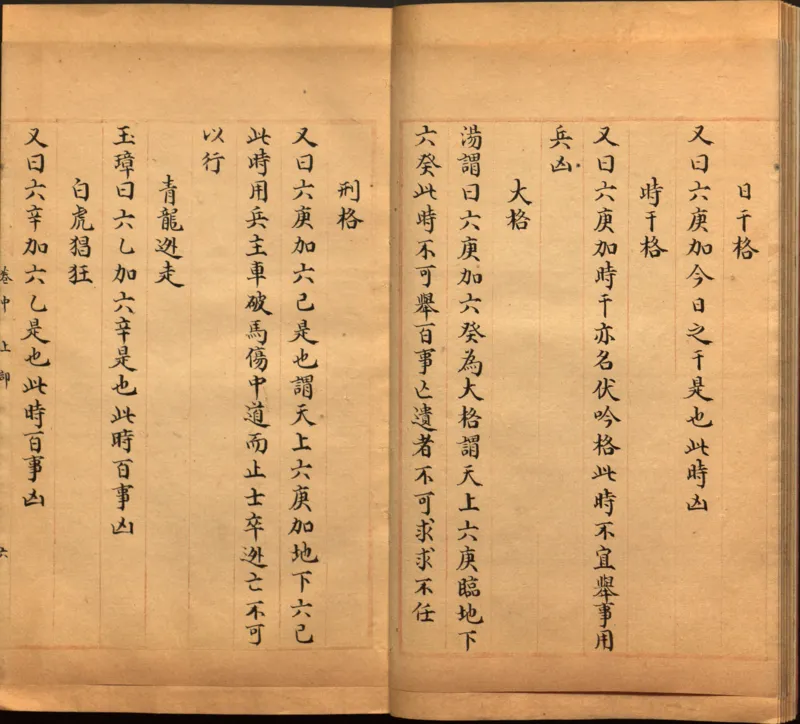 日干格
又曰六庚加今日之干是也此時凶
時干格
又曰六庚加時干亦名伏吟格此時不宜舉事用
兵凶
大格
湯謂曰六庚加六癸為大格謂天上六庚臨地下
六癸此時不可舉百事亡遺者不可求求不任
刑格
又曰六庚加六己是也謂天上六庚加地下六己
此時用兵主車破馬傷中道而止士卒逃亡不可
以行
青龍逃走
玉璋曰六乙加六辛是也此時百事凶
白虎猖狂
又曰六辛加六乙是也此時百事凶
卷中 上部
六